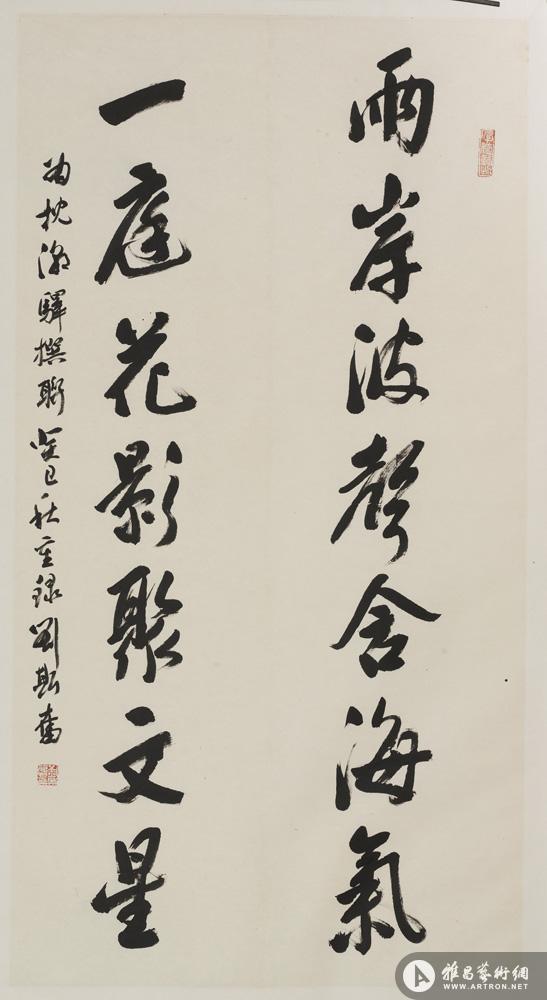 兩岸波聲含海氣
一庭花影聚文星
為枕濤驛撰聯癸巳秋重錄劉斯奮
雅昌藝術網
WWW.ARTRON.NET